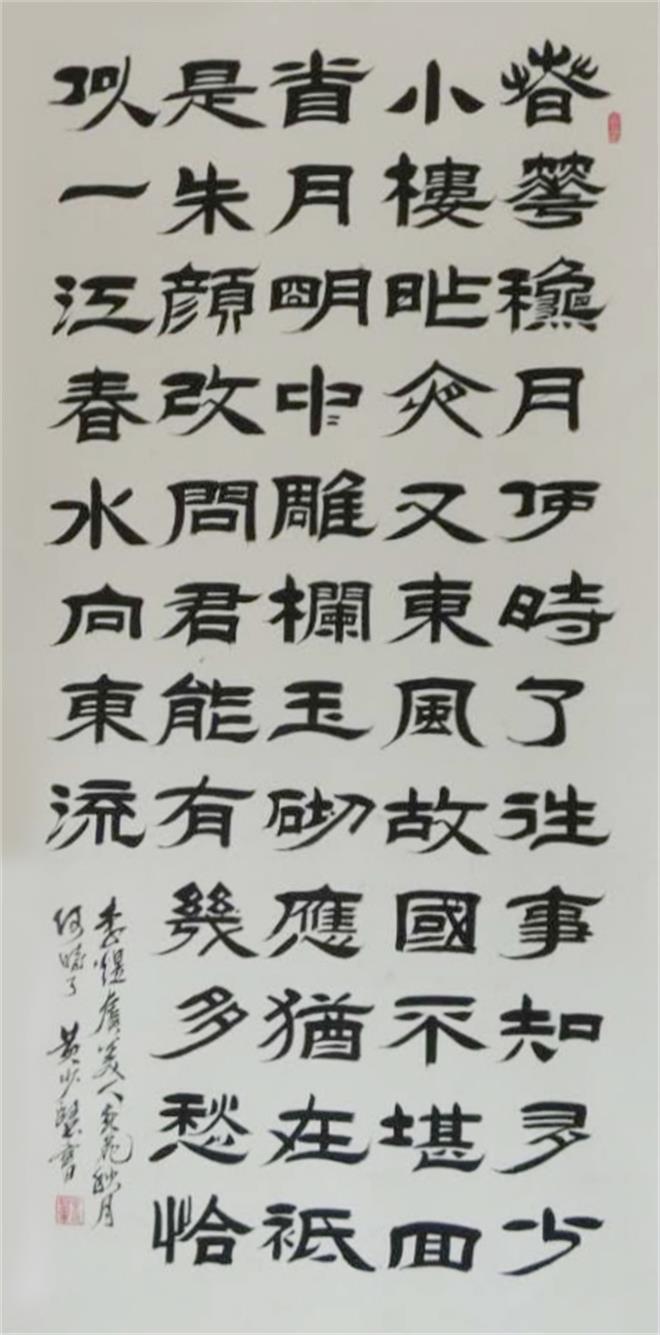 春華穐月何時了往事知多少
小樓昨夜又東風故國不堪回
首月朙中雕欄玉砌應猶在祇
是朱顏改問君能有幾多愁恰
似一江春水向東流
李煜虞美人春花秋月
何時了 黄少書